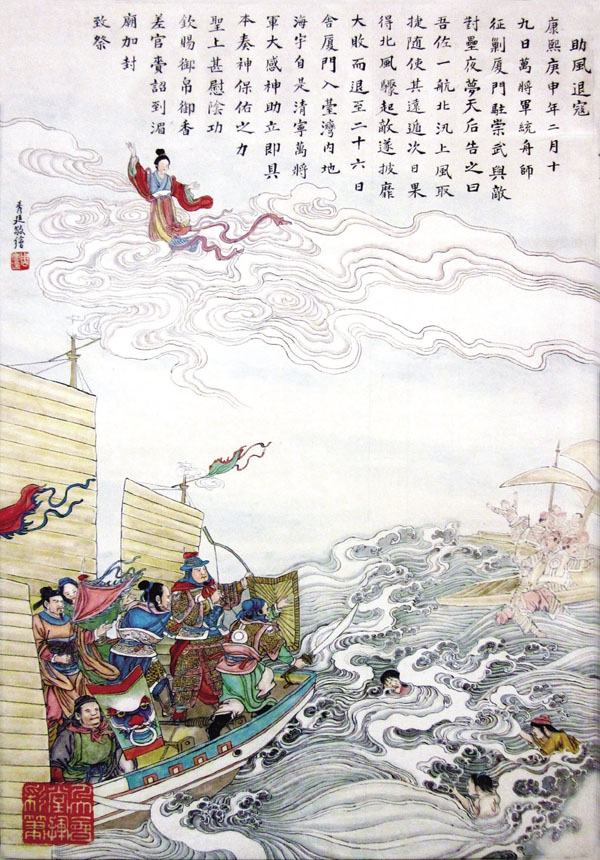 助風退寇
康熙庚申年二月十
九日萬將軍統舟師
征剿厦門駐崇武與敵
對壘夜夢天后告之曰
吾佐一航北汛上風取
捷隨使其遠遁次日果
得北風驟起敵遂披靡
大敗而退至二十六日
舍厦門入臺灣內地
海宇自是清寧萬將
軍大感神助立即具
本奏神保佑之力
聖上甚慰陰功
欽賜御帛御香
差官賫詔到湄
廟加封
致祭
廷敬繪